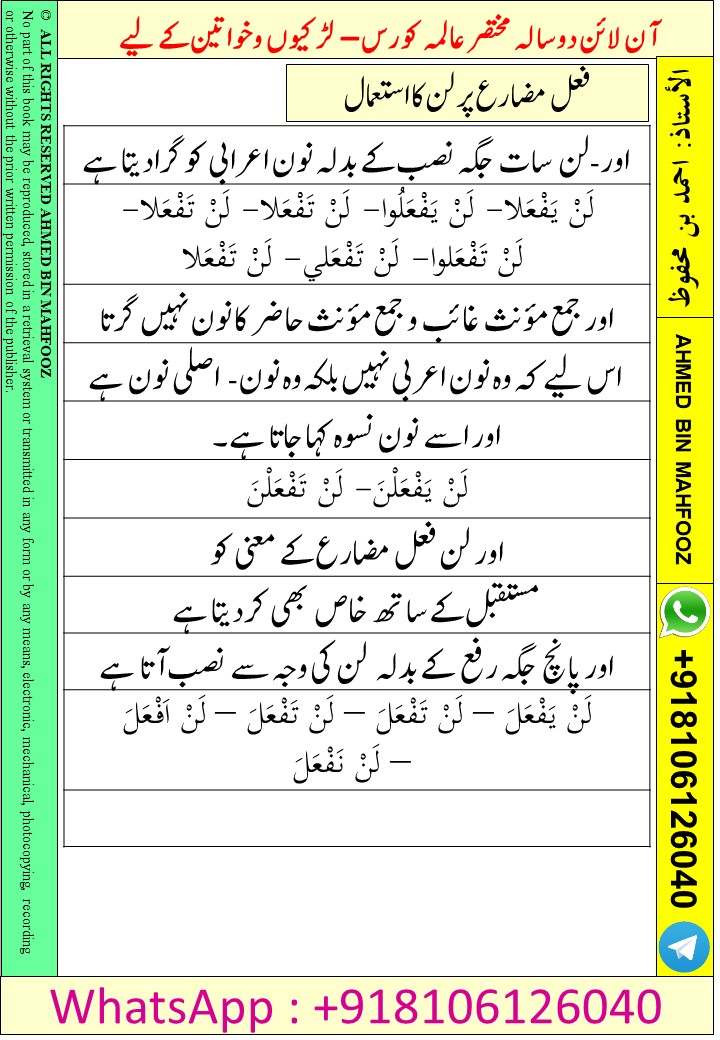 آن لائن دو سالہ مختصر عالمہ کورس– لڑکیوں و خواتین کے لیے
فعل مضارع پر لن کا استعمال
اور-لن سات جگہ نصب کے بدلہ نون اعرابی کو گرا دیتا ہے
لَنْ يَفْعَلا– لَنْ يَفْعَلُوا– لَنْ تَفْعَلا– لَنْ تَفْعَلا–
لَنْ تَفْعَلوا– لَنْ تَفْعَلي– لَنْ تَفْعَلا
اور جمع مؤنث غائب و جمع مؤنث حاضر کا نون نہیں گرتا
اس لیے کہ وہ نون اعربی نہیں بلکہ وہ نون- اصلی نون ہے
اور اسے نون نسوہ کہا جاتا ہے۔
لَنْ يَفْعَلْنَ– لَنْ تَفْعَلْنَ
اور لن فعل مضارع کے معنی کو
مستقبل کے ساتھ خاص بھی کر دیتا ہے
اور پانچ جگہ رفع کے بدلہ لن کی وجہ سے نصب آتا ہے
لَنْ يَفْعَلَ – لَنْ تَفْعَلَ – لَنْ تَفْعَلَ – لَنْ اَفْعَلَ
– لَنْ نَفْعَلَ
الأستاذ: احمد بن محفوظ
AHMED BIN MAHFOOZ
+918106126040
© ALL RIGHTS RESERVED AHMED BIN MAHFOOZ
No part of this book may be reproduced, stored in a retrieval system or transmitted in any form or by any means, electronic, mechanical, photocopying, recording
or otherwise without the prior written permission of the publisher.
WhatsApp : +918106126040